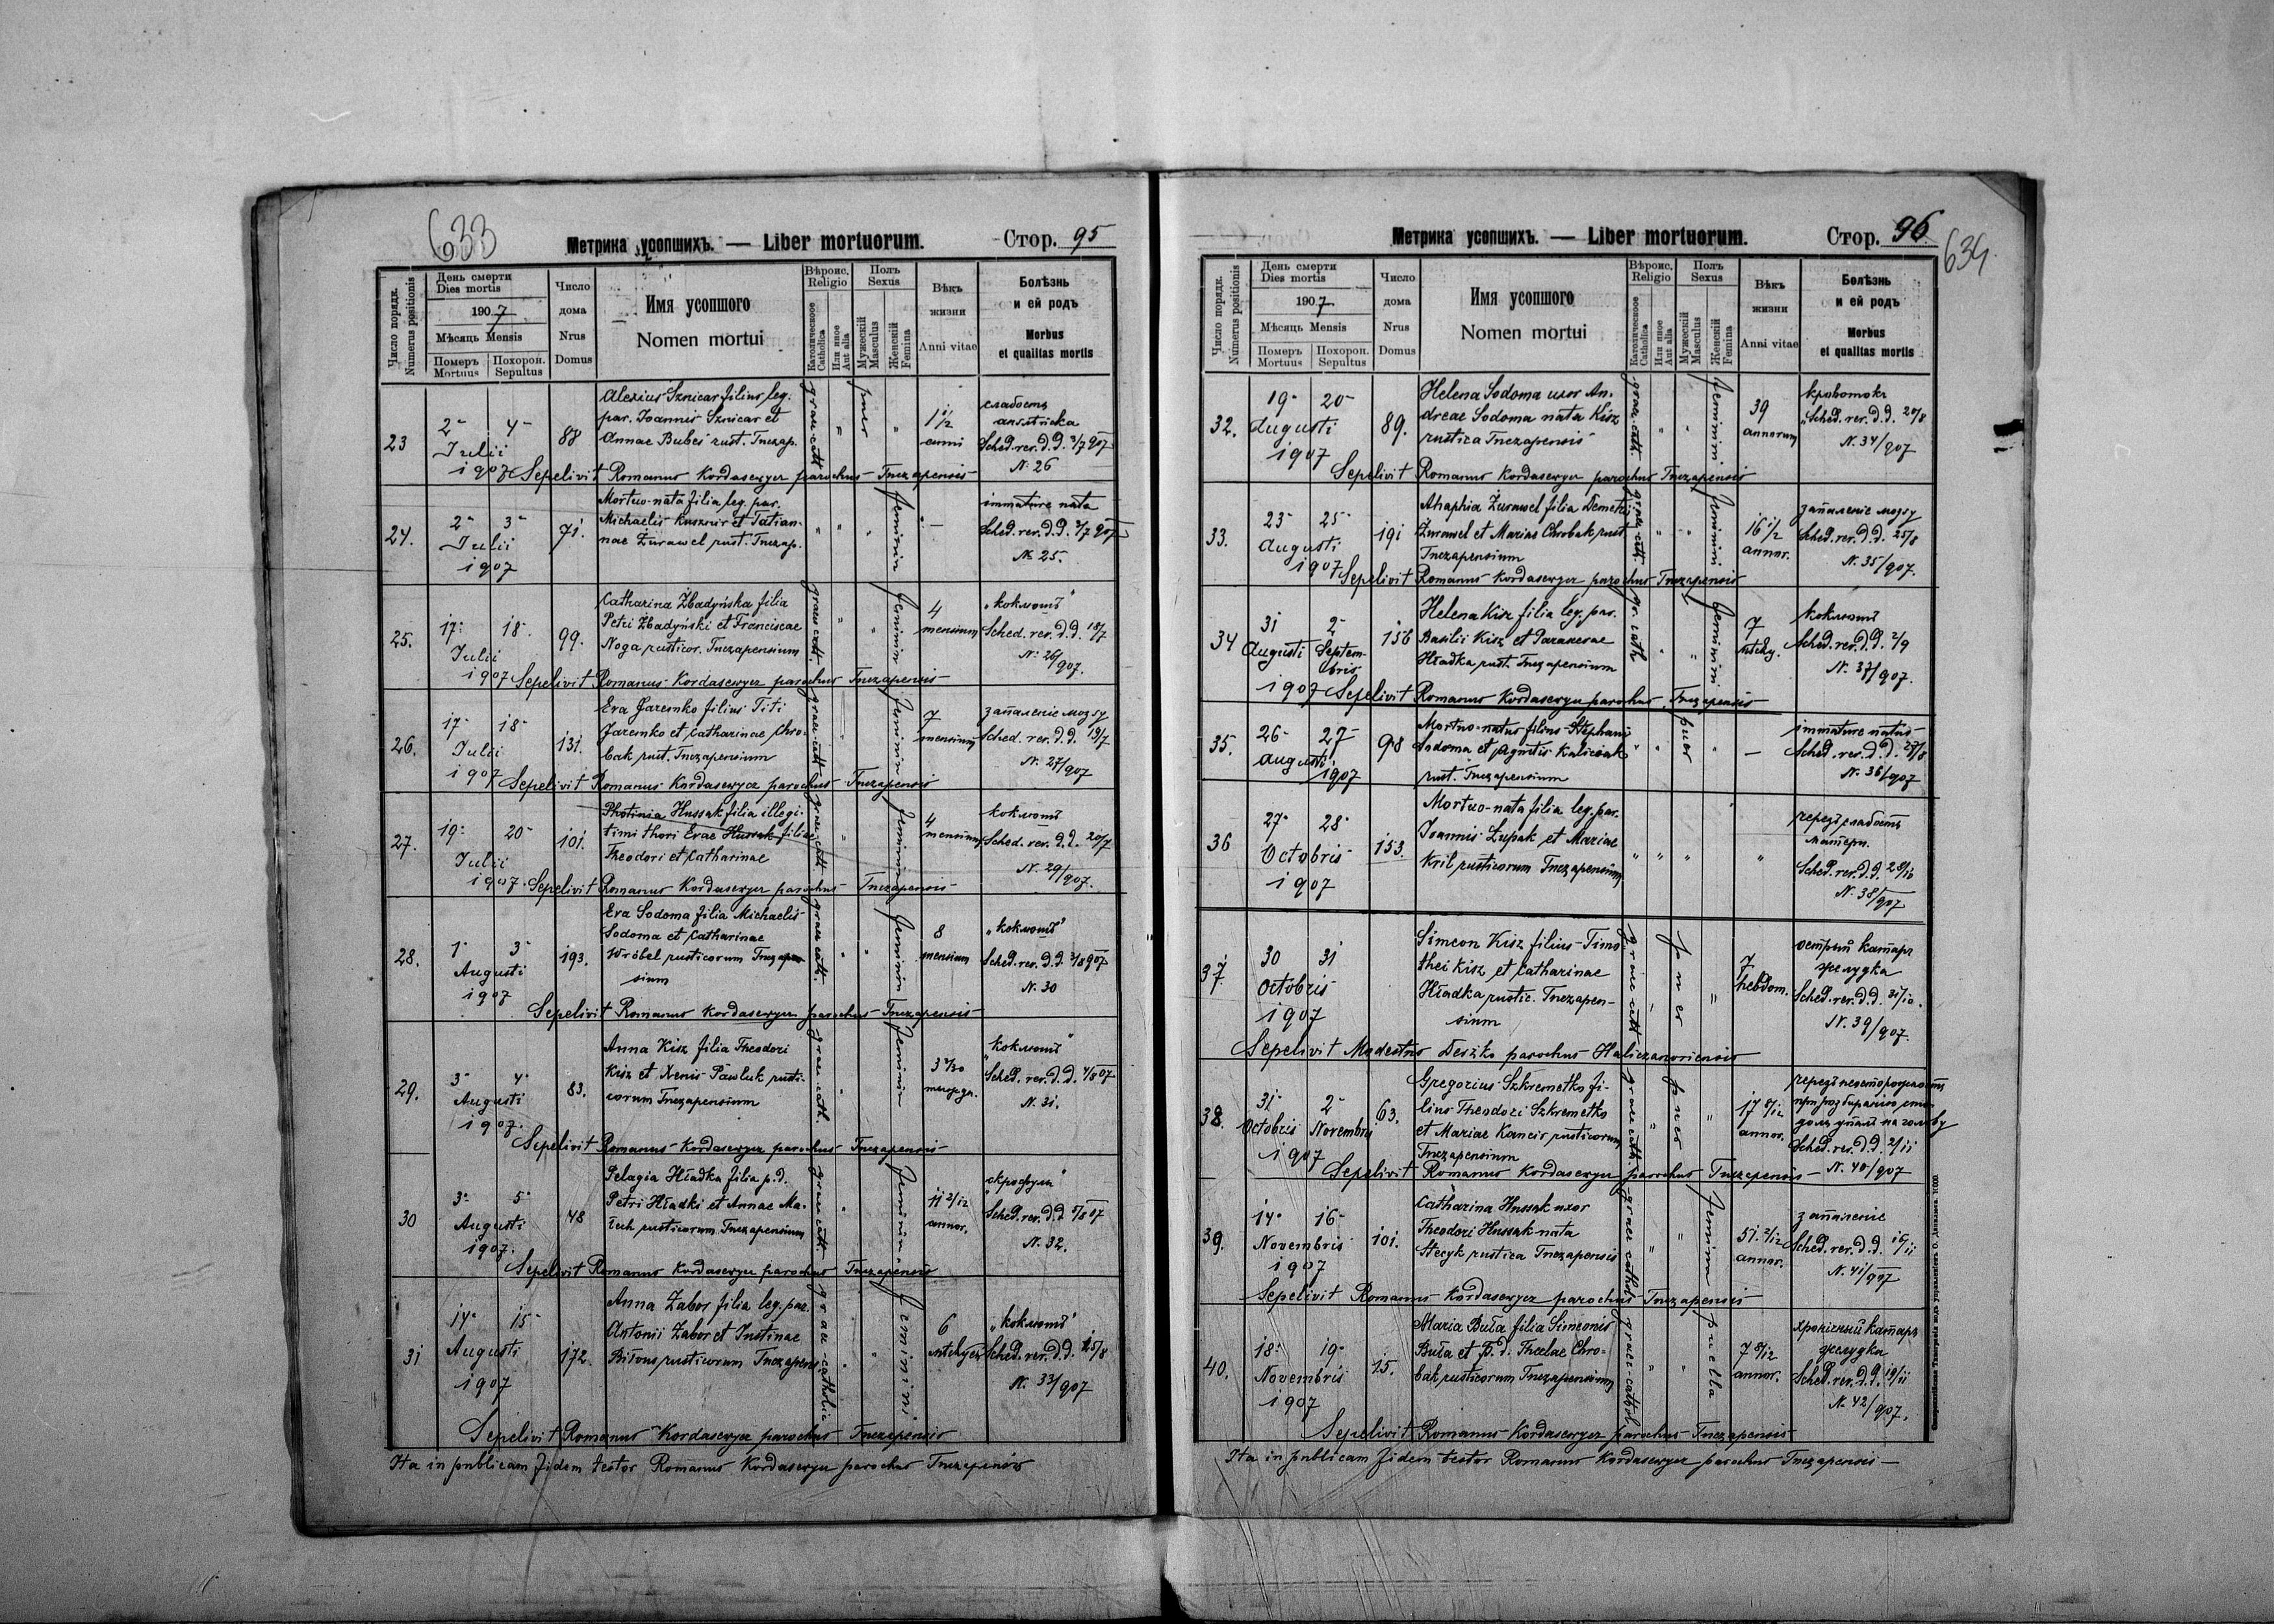 633
Метрика усопшихъ. — Liber mortuorum.
Стор. 95
Число порядк. Numerus positionis
День смерти Dies mortis
1907
Мѣсяць Mensis
Померъ Mortuus
Похорон. Sepultus
Число дома Nrus Domus
Имя усопшого Nomen mortui
Вѣроис. Religio
Католическое Catholica
Или иное Aut alia
Полъ Sexus
Мужескій Masculus
Женскій Femina
Вѣкъ жизни Anni vitae
Болѣзнь и ей родъ Morbus et qualitas mortis
23
2 4
Julii
1907
88
Alexius Sznicar filius leg.
par. Joannis Sznicar et
Annae Bubeś rust. Tnczap.
graec catt
puer
1 1/2
anni
слабость
англійска
Sched. rer. d. d. 3/7 907
N. 26
Sepelivit Romanus Kordasewycz parochus Tnczapensis
24.
2 3
Julii
1907
71.
Mortuo-nata filia leg. par.
Michaelis Kusznir et Tatian-
nae Żurawel rust. Tnczap.
feminin
—
immature nata
Sched. rer. d. d. 3/7 907
N. 25.
25.
17 18
Julii
1907
99.
Catharina Żbadyńska filia
Petri Żbadyński et Franciscae
Noga rusticor. Tnczapensium
graec catt.
feminin
4
mensium
"коклюшъ"
Sched. rer. d. d. 18/7
N. 26/907.
Sepelivit Romanus Kordasewycz parochus Tnczapensis
26.
17 18
Julii
1907
131.
Eva Jaremko filius Titi
Jaremko et Catharinae Chro-
bak rust. Tnczapensium
graec catt
feminin
7
mensium
запаленіе мозгу
Sched. rer. d. d. 19/7
N. 27/907
Sepelivit Romanus Kordasewycz parochus Tnczapensis
27.
19 20
Julii
1907.
101.
Photinia Hussak filia illegi-
timi thori Evae Hussak filiae
Theodori et Catharinae
graec catt
feminin
4
mensium
коклюшъ
Sched. rer. d. d. 20/7
N. 29/907.
Sepelivit Romanus Kordasewycz parochus Tnczapensis
28.
1 3
Augusti
1907
193.
Eva Sodoma filia Michaelis
Sodoma et Catharinae
Wróbel rusticorum Tnczapen
sium
graec cath.
feminin
8
mensium
"коклюшъ"
Sched. rer. d. d. 3/8 907
N. 30
Sepelivit Romanus Kordasewycz parochus Tnczapensis
29.
3 4
Augusti
1907.
83.
Anna Kisz filia Theodori
Kisz et Xenis Pawluk rusti-
corum Tnczapensium
graec cath.
feminin
"коклюшъ"
Sched. rer. d. d. 4/8 07
N. 31.
Sepelivit Romanus Kordasewycz parochus Tnczapensis
30
3 5
Augusti
1907.
48
Pelagia Hładka filia p. d.
Petri Hładki et Annae Ma-
rusticorum Tnczapensium
graec catt
feminin
11 2/12
annor.
скрофулы
Sched. rer. d. d. 5/8 07
N. 32.
Sepelivit Romanus Kordasewycz parochus Tnczapensis
31
14 15
Augusti
1907
172.
Anna Zabor filia leg. par.
Antonii Zabor et Justinae
Biłous rusticorum Tnczapens
graec-catholic
feminini
6
"коклюшъ"
Sched. rer. d. d. 15/8
N. 33/907
Sepelivit Romanus Kordasewycz parochus Tnczapensis
Ita in publicam fidem testor Romanus Kordasewycz parochus Tnczapensis
Метрика усопшихъ. — Liber mortuorum.
Стор. 96
634
Число порядк. Numerus positionis
День смерти Dies mortis
1907
Мѣсяць Mensis
Померъ Mortuus
Похорон. Sepultus
Число дома Nrus Domus
Имя усопшого Nomen mortui
Вѣроис. Religio
Католическое Catholica
Или иное Aut alia
Полъ Sexus
Мужескій Masculus
Женскій Femina
Вѣкъ жизни Anni vitae
Болѣзнь и ей родъ Morbus et qualitas mortis
32.
19 20
Augusti
1907
89.
Helena Sodoma uxor An-
dreae Sodoma nata Kisz
rustica Tnczapensis
graec-catt.
feminin
39
annorum
кровотокъ
Sched. rer. d. d. 20/8
N. 34/907
Sepelivit Romanus Kordasewycz parochus Tnczapensis
33.
23 25
Augusti
1907
191
Ahaphia Żurawel filia Demetr
Żurawel et Mariae Chrobak rust
Tnczapensium
graec catt.
feminin
16 1/2
annor.
запаленіе мозгу
Sched. rer. d. d. 25/8
N. 35/907.
Sepelivit Romanus Kordasewycz parochus Tnczapensis
34
31 2
Augusti Septem-
bris
1907
156
Helena Kisz filia leg. par.
Basilii Kisz et Parascae
Hładka rust. Tnczapensium
gr. cath
feminini
7
коклюшъ
Sched. rer. d. d. 2/9
N. 37/907.
Sepelivit Romanus Kordasewycz parochus Tnczapensis
35.
26 27
Augusti
1907
98
Mortuo-natus filius Stephani
Sodoma et Agnetis Kaliczak
rust. Tnczapensium
puer
—
immature natus
Sched. rer. d. d. 27/8
N. 36/907
36
27 28
Octobris
1907
153.
Mortuo-nata filia leg. par.
Joannis Łupak et Mariae
Kril rusticorum Tnczapensium
черезъ слабость
матери.
Sched. rer. d. d. 28/10
N. 38/907
37.
30 31
Octobris
1907
Simeon Kisz filius Timo
thei Kisz et Catharinae
Hładka rustic. Tnczapen-
sium
graec catt
puer
7
hebdom.
острый катаръ
желудка
Sched. rer. d. d. 31/10.
N. 39/907.
Sepelivit Modestus Deszko parochus Haliczanoviensis
38.
31 2
Octobris Novembris
1907
63.
Gregorius Szkremetko fi-
lius Theodori Szkremetko
et Mariae Kancir rusticorum
Tnczapensium
graec cath
puer
17 8/12
annor.
черезъ неосторожность
при розбиранію сто-
долы упалъ на голову
Sched. rer. d. d. 2/11
N. 40/907
Sepelivit Romanus Kordasewycz parochus Tnczapensis
39.
14 16
Novembris
1907
101.
Catharina Hussak uxor
Theodori Hussak nata
Stecyk rustica Tnczapensis
graec cathol
feminin
51 2/12
annor.
запаленіе
Sched. rer. d. d. 16/11
N. 41/907
Sepelivit Romanus Kordasewycz parochus Tnczapensis
40.
18 19
Novembris
1907
15.
Maria Buła filia Simeonis
Buła et p. d. Theclae Chro-
bak rusticorum Tnczapensium
graec-cathol
puella
7 8/12
annor.
хроничный катаръ
желудка
Sched. rer. d. d. 19/11
N. 42/907.
Sepelivit Romanus Kordasewycz parochus Tnczapensis
Ita in publicam fidem testor Romanus Kordasewycz parochus Tnczapensis